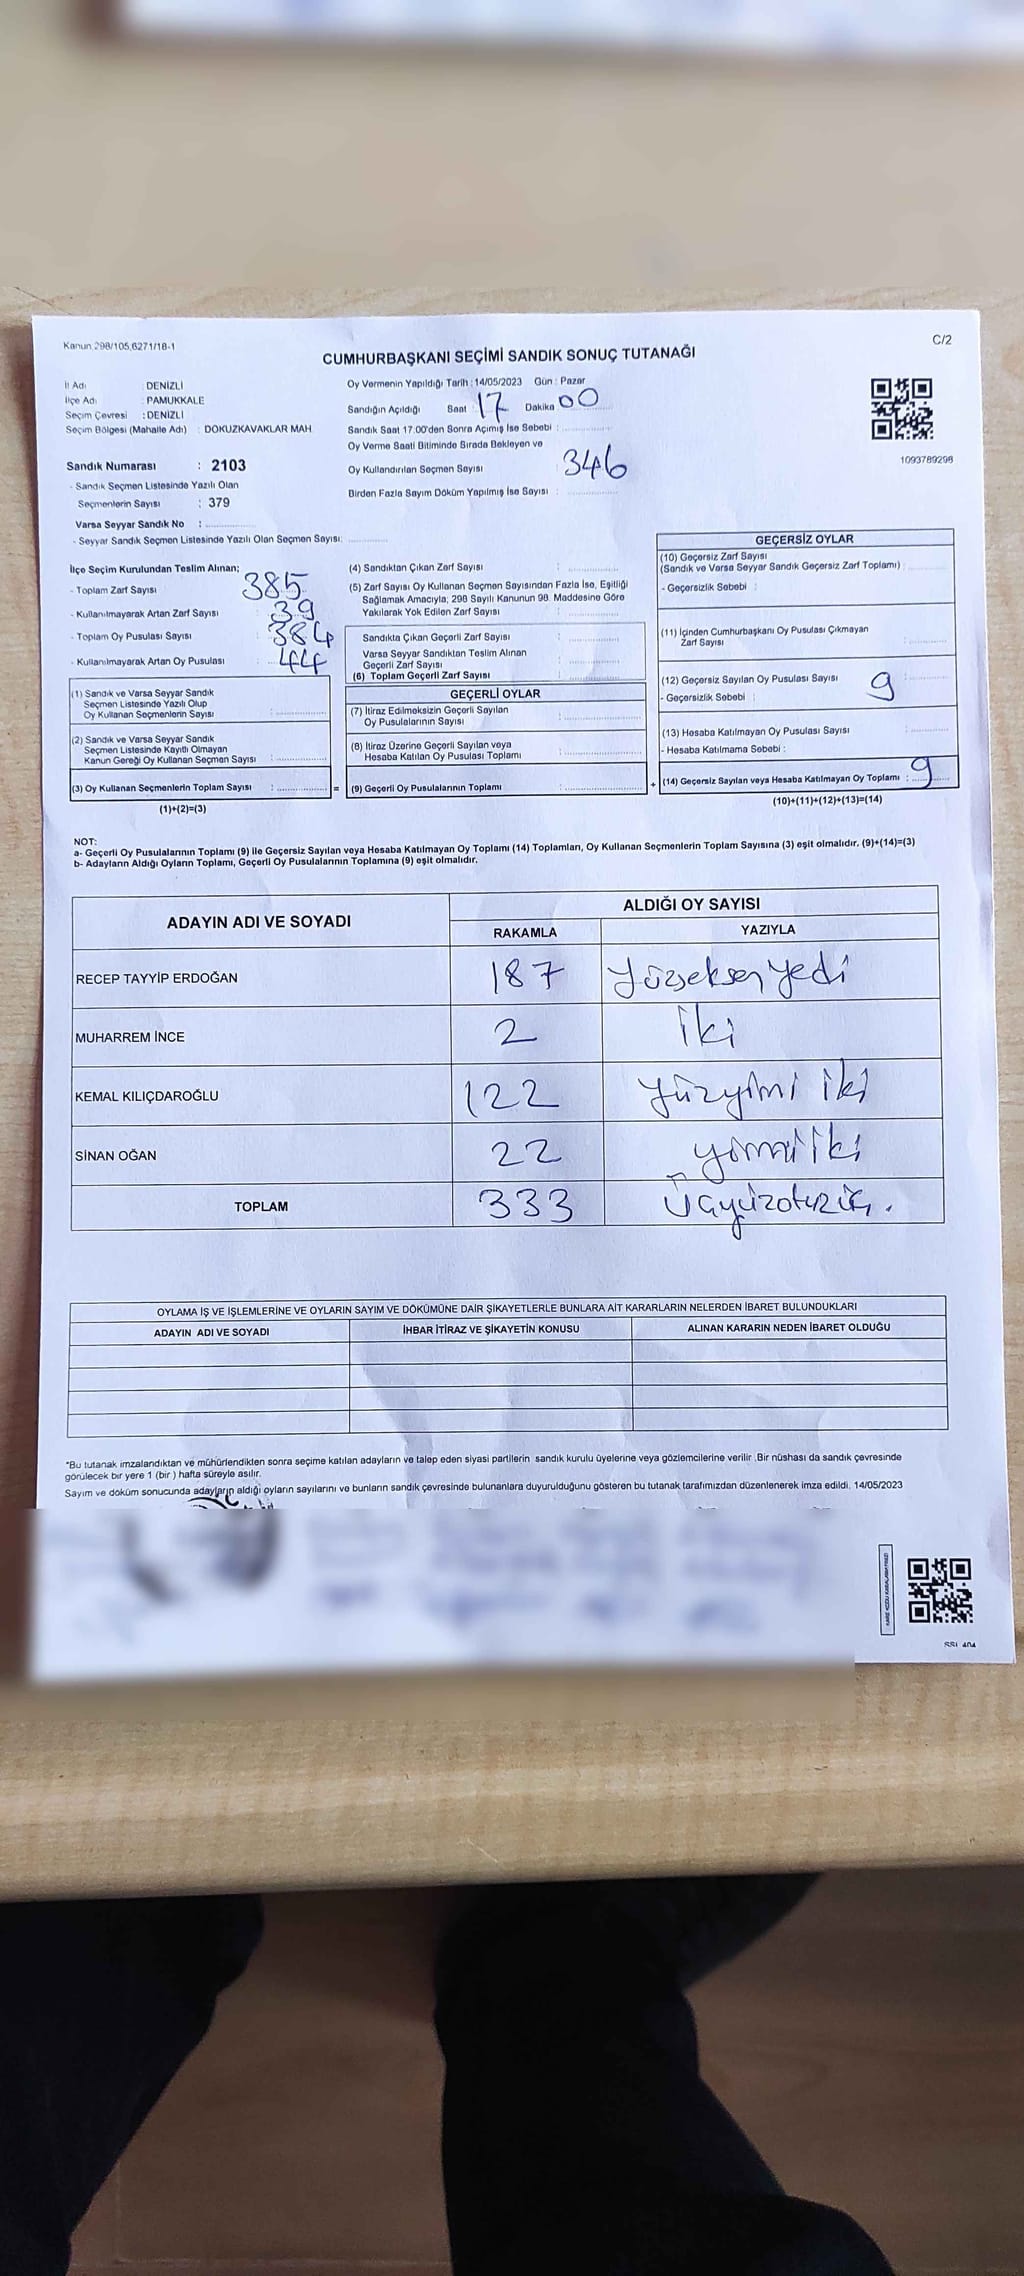 Kanun 298/105,6271/18-1
C/2
CUMHURBAŞKANI SEÇİMİ SANDIK SONUÇ TUTANAĞI
İl Adı : DENİZLİ
İlçe Adı : PAMUKKALE
Seçim Çevresi : DENİZLİ
Seçim Bölgesi (Mahalle Adı) : DOKUZKAVAKLAR MAH
Sandık Numarası : 2103
- Sandık Seçmen Listesinde Yazılı Olan
Seçmenlerin Sayısı : 379
Varsa Seyyar Sandık No :
- Seyyar Sandık Seçmen Listesinde Yazılı Olan Seçmen Sayısı:
Oy Vermenin Yapıldığı Tarih : 14/05/2023 Gün : Pazar
Sandığın Açıldığı Saat : 17 Dakika 00
Sandık Saat 17.00'den Sonra Açılmış İse Sebebi :
Oy Verme Saati Bitiminde Sırada Bekleyen ve
Oy Kullandırılan Seçmen Sayısı 346
Birden Fazla Sayım Döküm Yapılmış İse Sayısı :
1093789298
İlçe Seçim Kurulundan Teslim Alınan;
- Toplam Zarf Sayısı : 385
- Kullanılmayarak Artan Zarf Sayısı : 39
- Toplam Oy Pusulası Sayısı : 384
- Kullanılmayarak Artan Oy Pusulası : 44
(1) Sandık ve Varsa Seyyar Sandık
Seçmen Listesinde Yazılı Olup
Oy Kullanan Seçmenlerin Sayısı :
(2) Sandık ve Varsa Seyyar Sandık
Seçmen Listesinde Kayıtlı Olmayan
Kanun Gereği Oy Kullanan Seçmen Sayısı :
(3) Oy Kullanan Seçmenlerin Toplam Sayısı : =
(1)+(2)=(3)
(4) Sandıktan Çıkan Zarf Sayısı :
(5) Zarf Sayısı Oy Kullanan Seçmen Sayısından Fazla İse, Eşitliği
Sağlamak Amacıyla; 298 Sayılı Kanunun 98. Maddesine Göre
Yakılarak Yok Edilen Zarf Sayısı :
Sandıkta Çıkan Geçerli Zarf Sayısı :
Varsa Seyyar Sandıktan Teslim Alınan
Geçerli Zarf Sayısı :
(6) Toplam Geçerli Zarf Sayısı :
GEÇERLİ OYLAR
(7) İtiraz Edilmeksizin Geçerli Sayılan
Oy Pusulalarının Sayısı :
(8) İtiraz Üzerine Geçerli Sayılan veya
Hesaba Katılan Oy Pusulası Toplamı :
(9) Geçerli Oy Pusulalarının Toplamı : +
GEÇERSİZ OYLAR
(10) Geçersiz Zarf Sayısı
(Sandık ve Varsa Seyyar Sandık Geçersiz Zarf Toplamı) :
- Geçersizlik Sebebi :
(11) İçinden Cumhurbaşkanı Oy Pusulası Çıkmayan
Zarf Sayısı :
(12) Geçersiz Sayılan Oy Pusulası Sayısı 9
- Geçersizlik Sebebi :
(13) Hesaba Katılmayan Oy Pusulası Sayısı :
- Hesaba Katılmama Sebebi :
(14) Geçersiz Sayılan veya Hesaba Katılmayan Oy Toplamı : 9
(10)+(11)+(12)+(13)=(14)
NOT:
a- Geçerli Oy Pusulalarının Toplamı (9) ile Geçersiz Sayılan veya Hesaba Katılmayan Oy Toplamı (14) Toplamları, Oy Kullanan Seçmenlerin Toplam Sayısına (3) eşit olmalıdır. (9)+(14)=(3)
b- Adayların Aldığı Oyların Toplamı, Geçerli Oy Pusulalarının Toplamına (9) eşit olmalıdır.
ADAYIN ADI VE SOYADI ALDIĞI OY SAYISI
RAKAMLA YAZIYLA
RECEP TAYYİP ERDOĞAN 187 Yüzseksenyedi
MUHARREM İNCE 2 iki
KEMAL KILIÇDAROĞLU 122 Yüzyirmi iki
SİNAN OĞAN 22 yirmi iki
TOPLAM 333 Üçyüzotuzüç.
OYLAMA İŞ VE İŞLEMLERİNE VE OYLARIN SAYIM VE DÖKÜMÜNE DAİR ŞİKAYETLERLE BUNLARA AİT KARARLARIN NELERDEN İBARET BULUNDUKLARI
ADAYIN ADI VE SOYADI İHBAR İTİRAZ VE ŞİKAYETİN KONUSU ALINAN KARARIN NEDEN İBARET OLDUĞU
*Bu tutanak imzalandıktan ve mühürlendikten sonra seçime katılan adayların ve talep eden siyasi partilerin sandık kurulu üyelerine veya gözlemcilerine verilir .Bir nüshası da sandık çevresinde
görülecek bir yere 1 (bir ) hafta süreyle asılır.
Sayım ve döküm sonucunda adayların aldığı oyların sayılarını ve bunların sandık çevresinde bulunanlara duyurulduğunu gösteren bu tutanak tarafımızdan düzenlenerek imza edildi. 14/05/2023